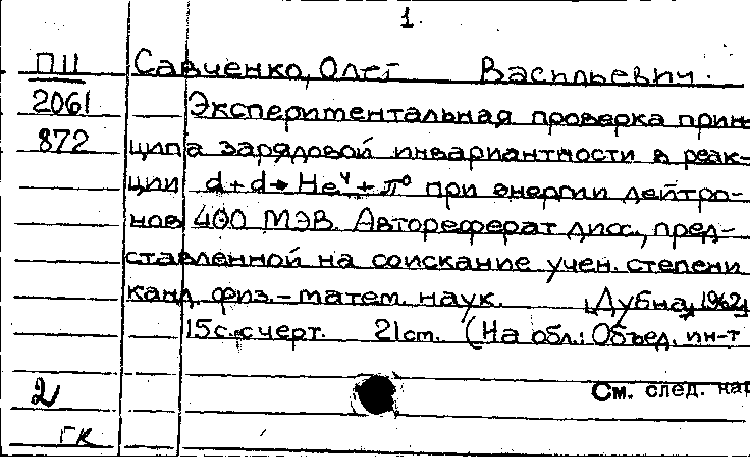 1.
П11 Савченко, Олег Васильевич.
2061 Экспериментальная проверка прин-
872 ципа зарядовой инвариантности в реак-
ции d+d→He⁴+π⁰ при энергии дейтро-
нов 400 МЭВ. Автореферат дисс., пред-
ставленной на соискание учен. степени
канд. физ.-матем. наук. [Дубна, 1962]
15 с. с черт. 21 см. (На обл.: Объед. ин-т
2 См. след. кар
ГК